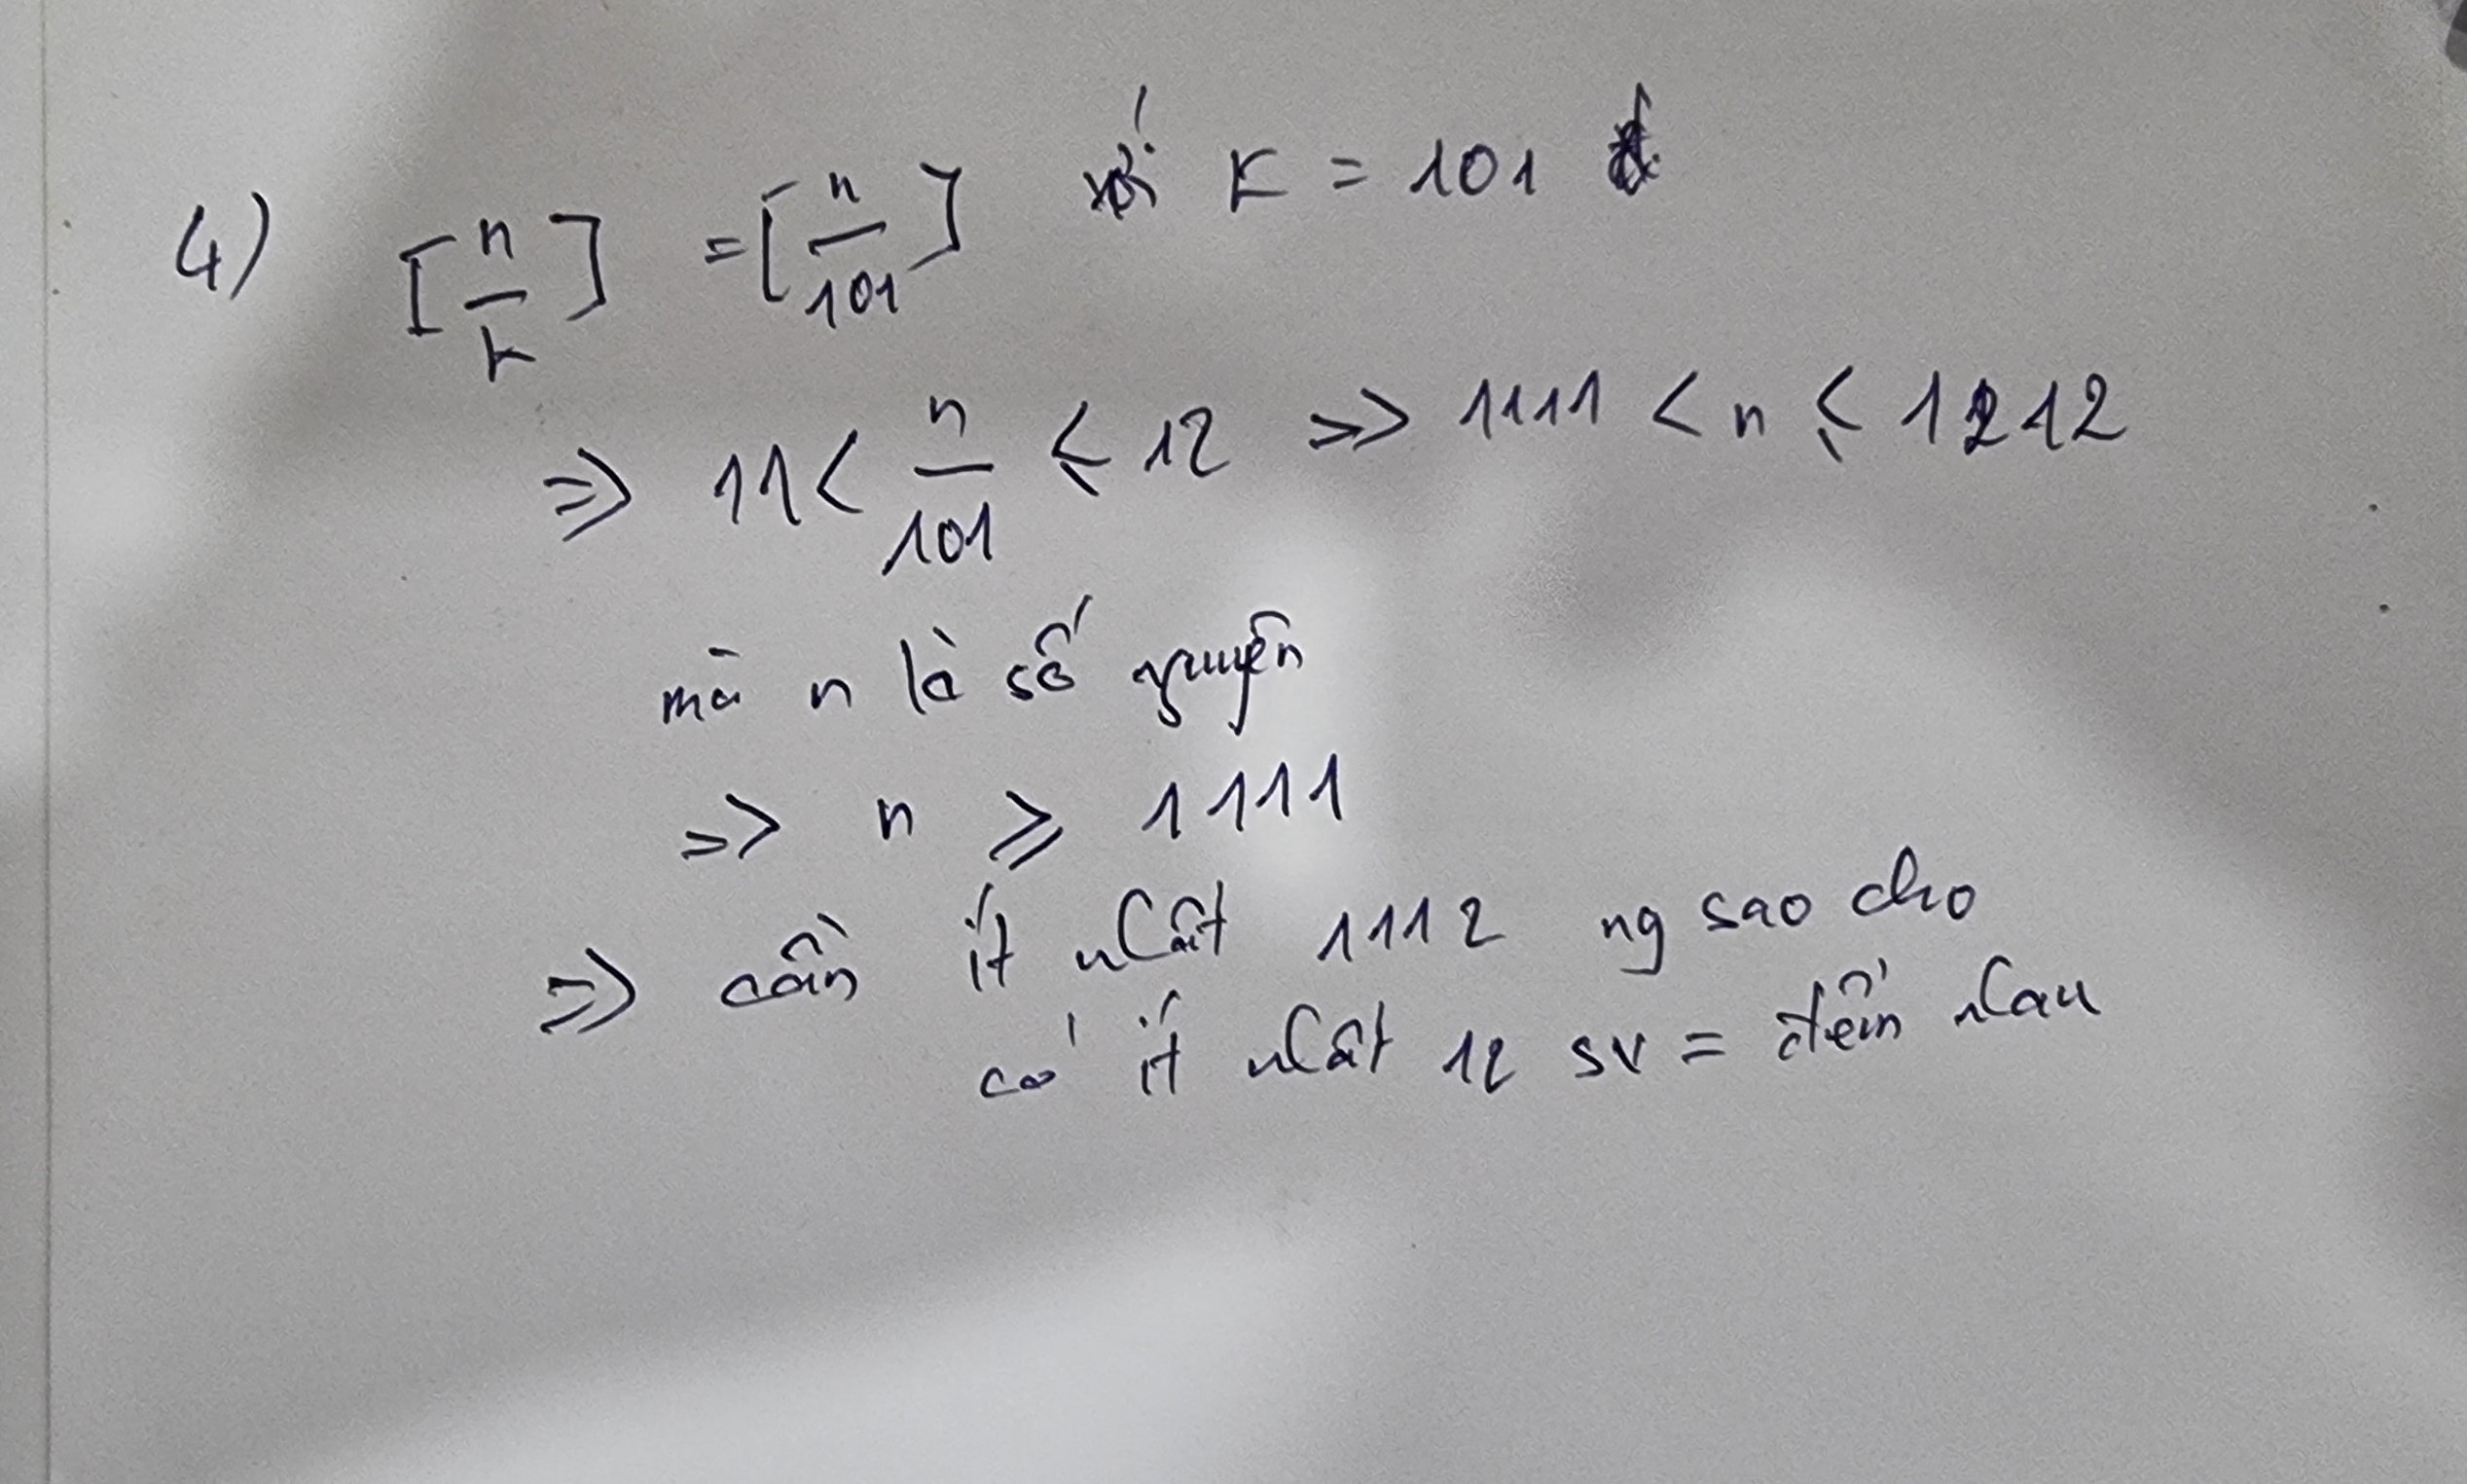 4) [n/k] = [n/101] với K = 101
=> 11 < n/101 ≤ 12 => 1111 < n ≤ 1212
mà n là số nguyên
=> n ≥ 1111
=> cần ít nhất 1112 ng sao cho
có ít nhất 12 sv = điểm nhau